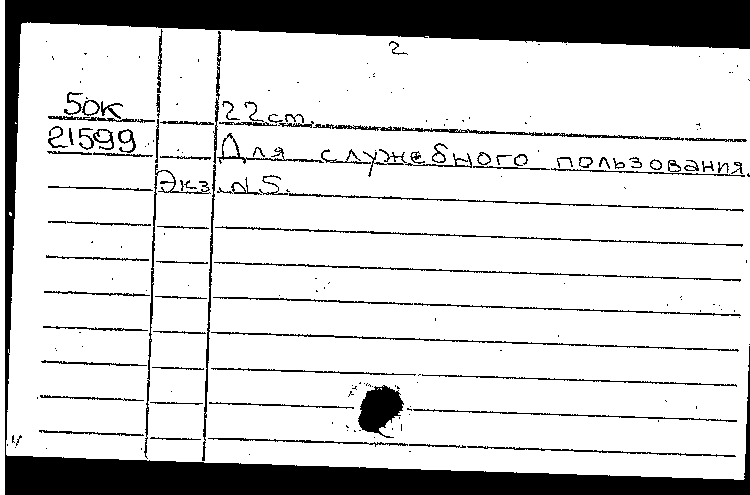 2
50к 22 cm.
21599 Для служебного пользования.
Экз. N 5.